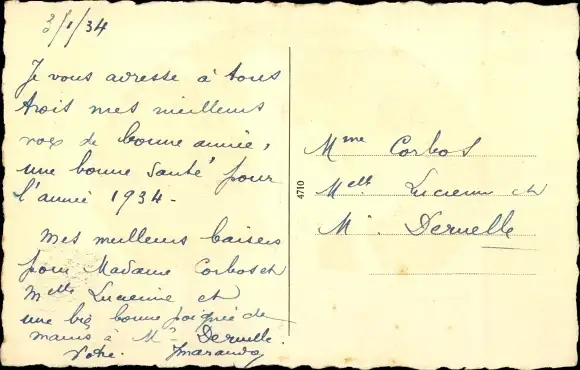 3/1/34
Je vous adresse à tous
trois mes meilleurs
vœx de bonne année,
une bonne santé pour
l'année 1934 -
Mes meilleurs baisers
pour Madame Corbos et
Melle Lucienne et
une bie bonne poignée de
mains à Mr Deruelle.
Votre.
4710
Mme Corbos
Melle Lucienne et
Mr. Deruelle